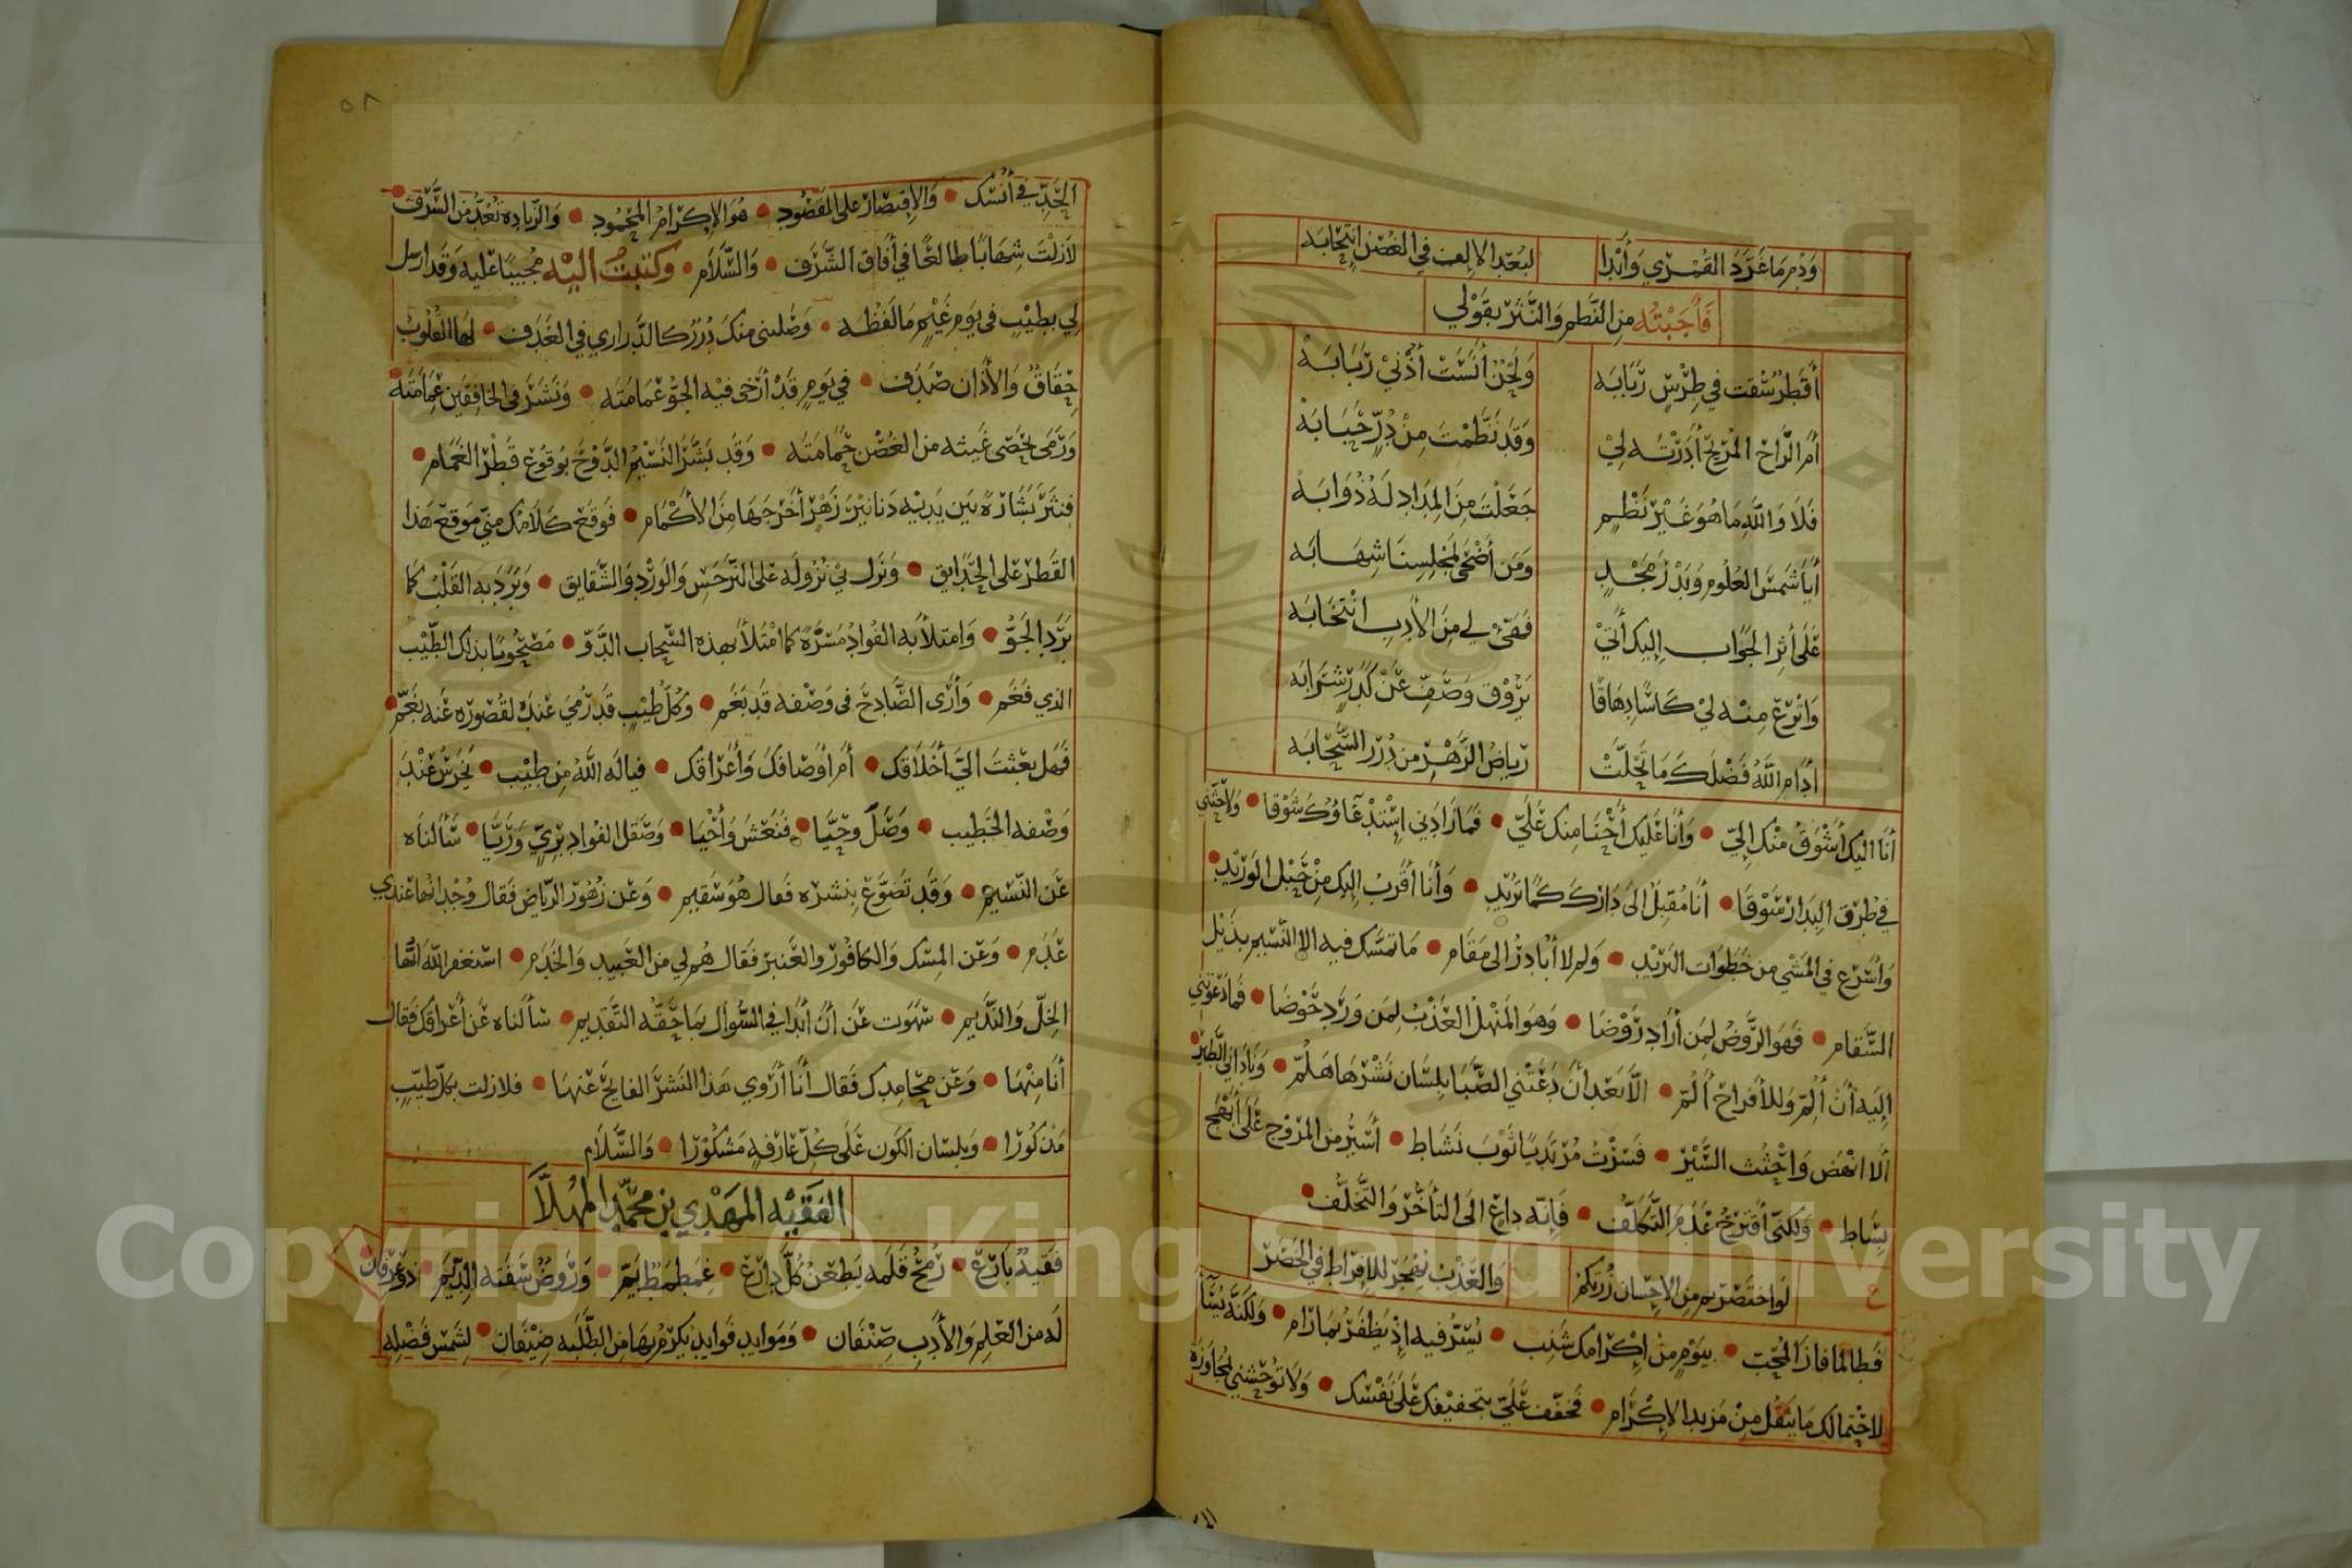 وَدُمْ مَا غَرَّدَ القُمْرِي وَأَبْدَا لبُعْدِ الإلف في الغُصْنِ انتِحَابَه
فَأَجَبْتُه مِن النَّظم وَالنَّثر بقَوْلي
أَقَطْرٌ سُقْتَ في طِرْسٍ رَبَابَه وَلَحْنٌ أنْسَتَ أُذْنيْ رَبَابَهْ
أَمِ الرَّاحَ المُرِيْحَ أَدَرْتَه لِيْ وَقَد نَظَّمْتَ مِنْ دُرٍّ حَبَابَهْ
فَلَا وَاللَّهِ مَا هُوَ غَيْرُ نَظْمٍ جَعَلْتَ مِنَ المِدَادِ لَهُ ذُوَابَهْ
أَيَا شَمْسَ العُلُومِ وَبَدْرَ مَجْدٍ وَمَن أَضْحَى لمَجْلِسِنَا شِهَابَه
عَلَى أَثرِ الجَوَاب إِليك أَتي لي مِنَ الأَدبِ انْتخَابَه
وَاتْرِعْ مِنْه لِيْ كَاسًا دِهَاقًا يَرُوْق وَصَفِّ عَنْ كَدَرٍ شَرَابَه
أَدَامَ اللَّهُ فَضْلَكَ مَا تَحَلَّتْ رِيَاضُ الزَّهْرِ من دُرَرِ السَّحَابَه
أنَا اليك أَشْوَقُ مِنْك إِليّ • وَأَنَا عَليك أَحْنَا مِنك عَلَيّ • فَمَا زَادَني اسْتِدْعَاؤُكَ شَوْقا • وَلَا حَثَّني
في طُرُق البِدَار سَوْقَا • أَنَا مُقبِلٌ الىَ دَارِكَ كَمَا تريْد • وَأَنَا أَقرَبُ إليك مِنْ حَبْل الوَرِيْد
وَاسْرَع في المَشْي من خُطُوَات البَريْد • وَلِمَ لا أُبَادِرُ الى مَقَام • مَا تمسّك فيه الا النَّسِيْمُ بذَيْل
السَّقَام • فَهَوَ الرَّوْضُ لِمَن أَرَادَ رَوْضَا • وَهوَ المَنْهلُ العَذْبُ لِمَن وَرَد حَوْضَا • فَمَا دَعَوتني
إلَيه أَن أُلِمّ وَللأَفرَاح أَلُمّ • الَّا بَعْد أَنْ دَعَتْني الصَّبَا بِلِسَان نَشْرِهَا هَلُمّ • وَنَادَاني الطَّيْرُ
ألَا انْهَض وَاحْثُث السَّيْر • فَسِرْتُ مُرْتَدِيًا ثَوْبَ نَشَاط • أَسِيْرُ من المرُوْج عَلَى أَبْهَج
بِسَاط • وَلكنّي أَقتَرِحُ عَدَم التَّكلُّف • فَإِنّه دَاعٍ الىَ التأَخُّر وَالتَّخَلُّف
ع لَو اخْتَصَرْتم مِن الاحْسَان زُرْتكمُ وَالعَذْبُ يُهْجَرُ للافْرَاطِ في الخَصَرْ
فَطَالمَا فازَ المُحِبّ • بيَوْمٍ مِنْ إِكْرَامك • يُسَرُّ فيه إذْ يَظفَرُ بمَا رَام • وَلكنَّه
لاحْتِمَالك مَا يثقُل مِنْ مَزيد الإكْرَام • فَخفِّف عَلَيّ بتخفيْفك عَلَى نَفْسك • وَلَا تُوْحِشْني بمُجَاوَزَة
٥٨
الحَدِّ في أُنْسك • وَالإقتصَارُ على المَقْصُود • هُوَ الإكرَامُ المَحْمُود • وَالزّيَادة تُعَدُّ من السَّرَف
لَا زلْتَ شِهَابًا طَالعًا في أُفَاق الشَّرَف • وَالسَّلَام • وَكتَبتُ اليْه مُجِيبًا عَليه وَقَد ارسَل
لي بطِيْبٍ في يَوْم غَيْمٍ مَا لَفظُه • وَصَلتني منكَ دُرَرٌ كالدَّرَاري في الغَدَف • لهَا القُلُوبُ
حِقَاقٌ وَالآذَان صَدَف • في يَوْمٍ قَدْ أَرْخَى فيْه الجَوُّ غَمَامَتَه • وَنَشَرَ في الخافقَين عِمَامَتَه
وَرَمَى بحَصَى غَيْثه من الغُصْن حَمَامَتَه • وَقَد بَشَّرَ النَسِيْمُ الدَّوْحَ بوُقُوْع قَطْر الغَمَام •
فنثَرَ بَشَارَةً بَين يَدَيْه دَنَانيْرَ زَهْرٍ أَخْرَجَهَا مِنَ الأَكْمَام • فَوَقعَ كلَامُك منّي مَوقعَ هَذا
القَطْر على الحَدَايق • وَنَزَلَ بيْ نُزُولَه عَلَى النَّرْجَسِ وَالوَرْدِ وَالشَّقَايق • وَبَرَدَ به القَلْبُ كمَا
بَرَدَ الجَوُّ • وَامتَلأَ به الفُوَادُ مَسَرَّةً كمَا امْتَلأَ بهذه السَّحَاب الدَّوّ • مَصْحُوبًا بذلك الطِّيْب
الذي فَغَم • وَأَرَى الصَّادِحَ في وَصْفه قَد بَغَم • وَكُلّ طِيْبٍ قَد رُمِيَ عَنْدَهُ لقُصُوْره عَنه بغَمّ •
فَهَل بَعَثتَ اليَّ أَخْلَاقَك • أَم أَوْصَافَكَ وَأَعْرَاقَك • فيا لَه اللَّهُ مِن طِيْب • يَخْرَسُ عَنْدَ
وَصْفه الخَطِيب • وَصَلَ وَحَيَّا • فَنَعَشَ وَأَحْيَا • وَصَقَل الفُوَاد برِيٍّ وَرَيَّا • سَأَلناه
عَن النّسِيْم • وَقَد تَضَوَّعَ بنَشْره فَقال هُوَ سَقيم • وَعَن زُهُوْر الرّيَاض فَقال وُجْدَانُها عَندي
عَدَم • وَعَن المِسْك وَالكافُوْر وَالعَنبَر فَقَال هُم لي من العَبيد وَالخَدَم • اسْتَغفر اللّه أيُّها
الخِلّ وَالنَّديم • سَهَوت عَن أَنْ أَبْدَأ في السُّؤَال بمَا حَقُّه التَّقديم • سَألناه عَن أَعْرَاقك فَقال
أَنَا مِنْهَا • وَعَن مَحَامِدك فَقال أَنَا أَرْوي هَذا النَشْرَ الفايحَ عَنهَا • فلا زلت بكلّ طيّبٍ
مَذْكُورًا • وَبلسَان الكَون عَلَى كُلّ عَارفةٍ مَشْكُوْرًا • وَالسَّلَام
الفَقيْه المَهْدِي بن محمَّد المُهَلَّا
فَقيْهٌ بَارِعْ • رُمْحُ قَلَمه يَطعَنُ كُلَّ دارِعْ • غِطَمْطَمٌ يَمّ • وَرَوْضٌ سَقَتْه الدِّيَم • ذو عرْفان
لَه من العِلم وَالأَدَب صِنْفَان • وَمَوايد فَوايد يُكرَمُ بهَا من الطَّلَبَه ضِيْفَان • لشَمْسِ فَضْلِه
Copyright © King Saud University